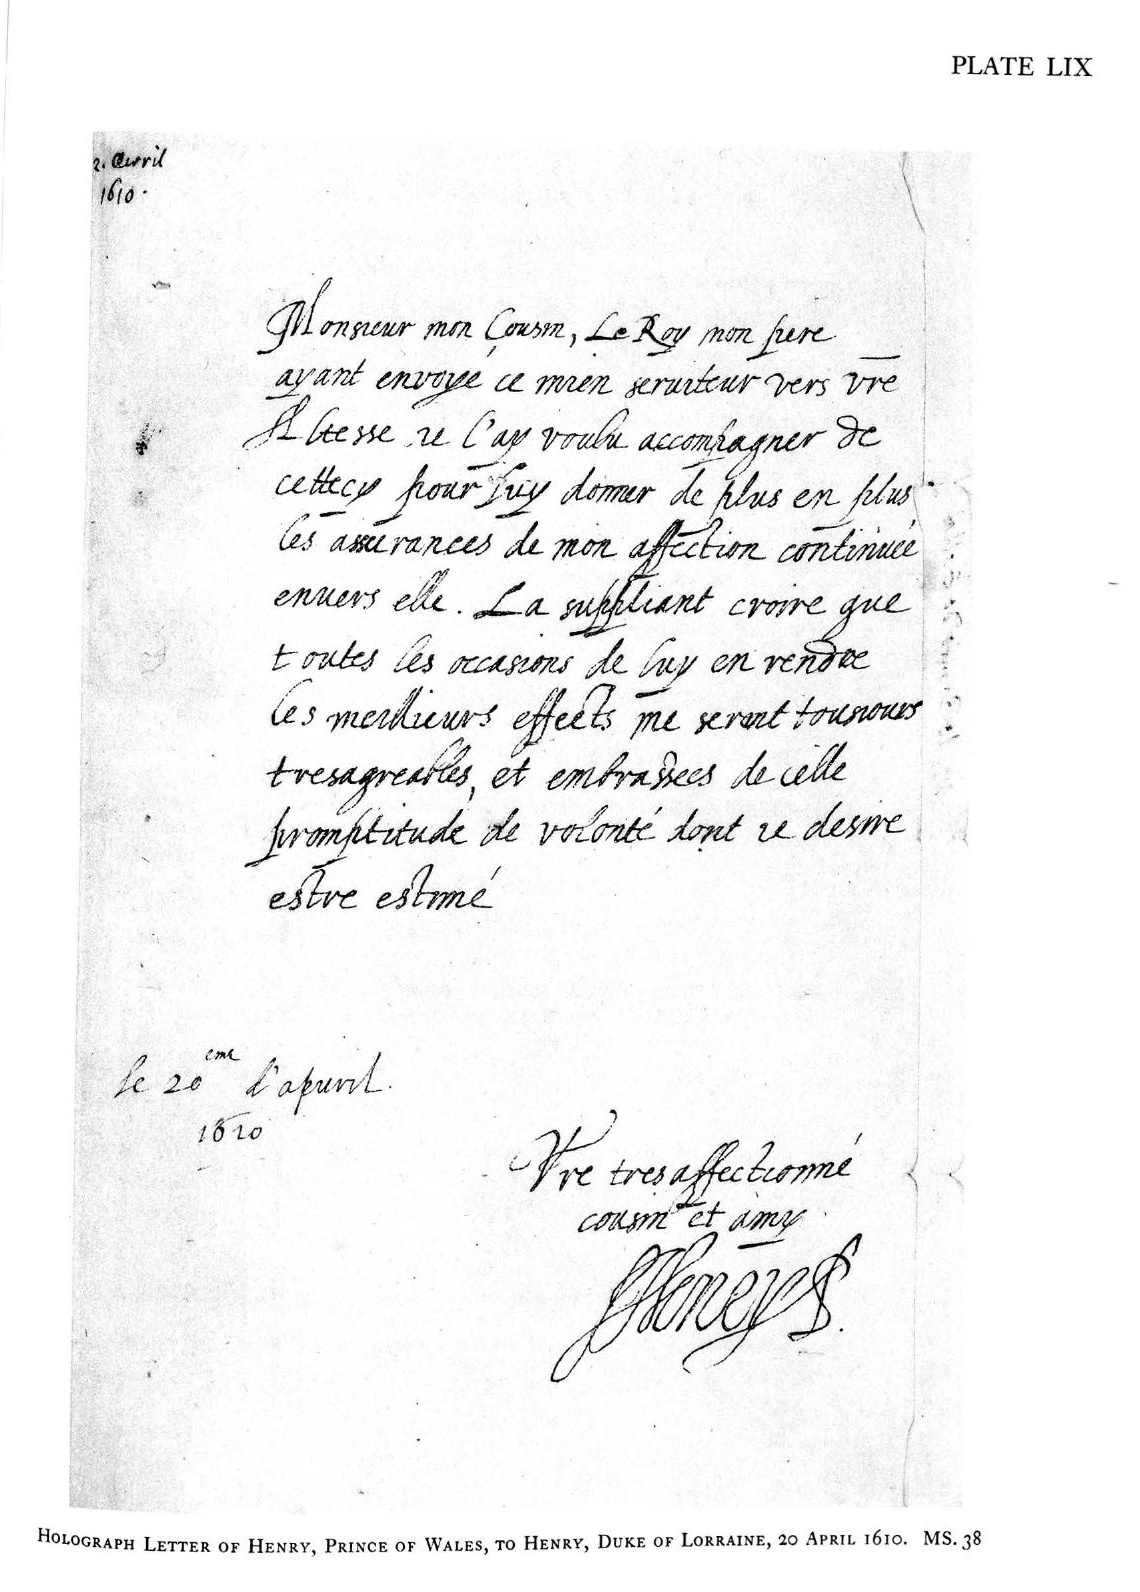 PLATE LIX
2. Avril
1610.
Monsieur mon Cousin, Le Roy mon pere
ayant envoyé ce mien seruiteur vers vre
Altesse ie l'ay voulu accompagner de
cettecy pour luy donner de plus en plus
les assurances de mon affection continuée
enuers elle. La suppliant croire que
toutes les occasions de luy en rendre
les meillieurs effects me seront tousiours
tresagreables, et embrassees de celle
promptitude de volonté dont ie desire
estre estimé
le 20eme d'apuril.
1610
Vre tresaffectionné
cousin et amy
Henry P.
HOLOGRAPH LETTER OF HENRY, PRINCE OF WALES, TO HENRY, DUKE OF LORRAINE, 20 APRIL 1610. MS. 38